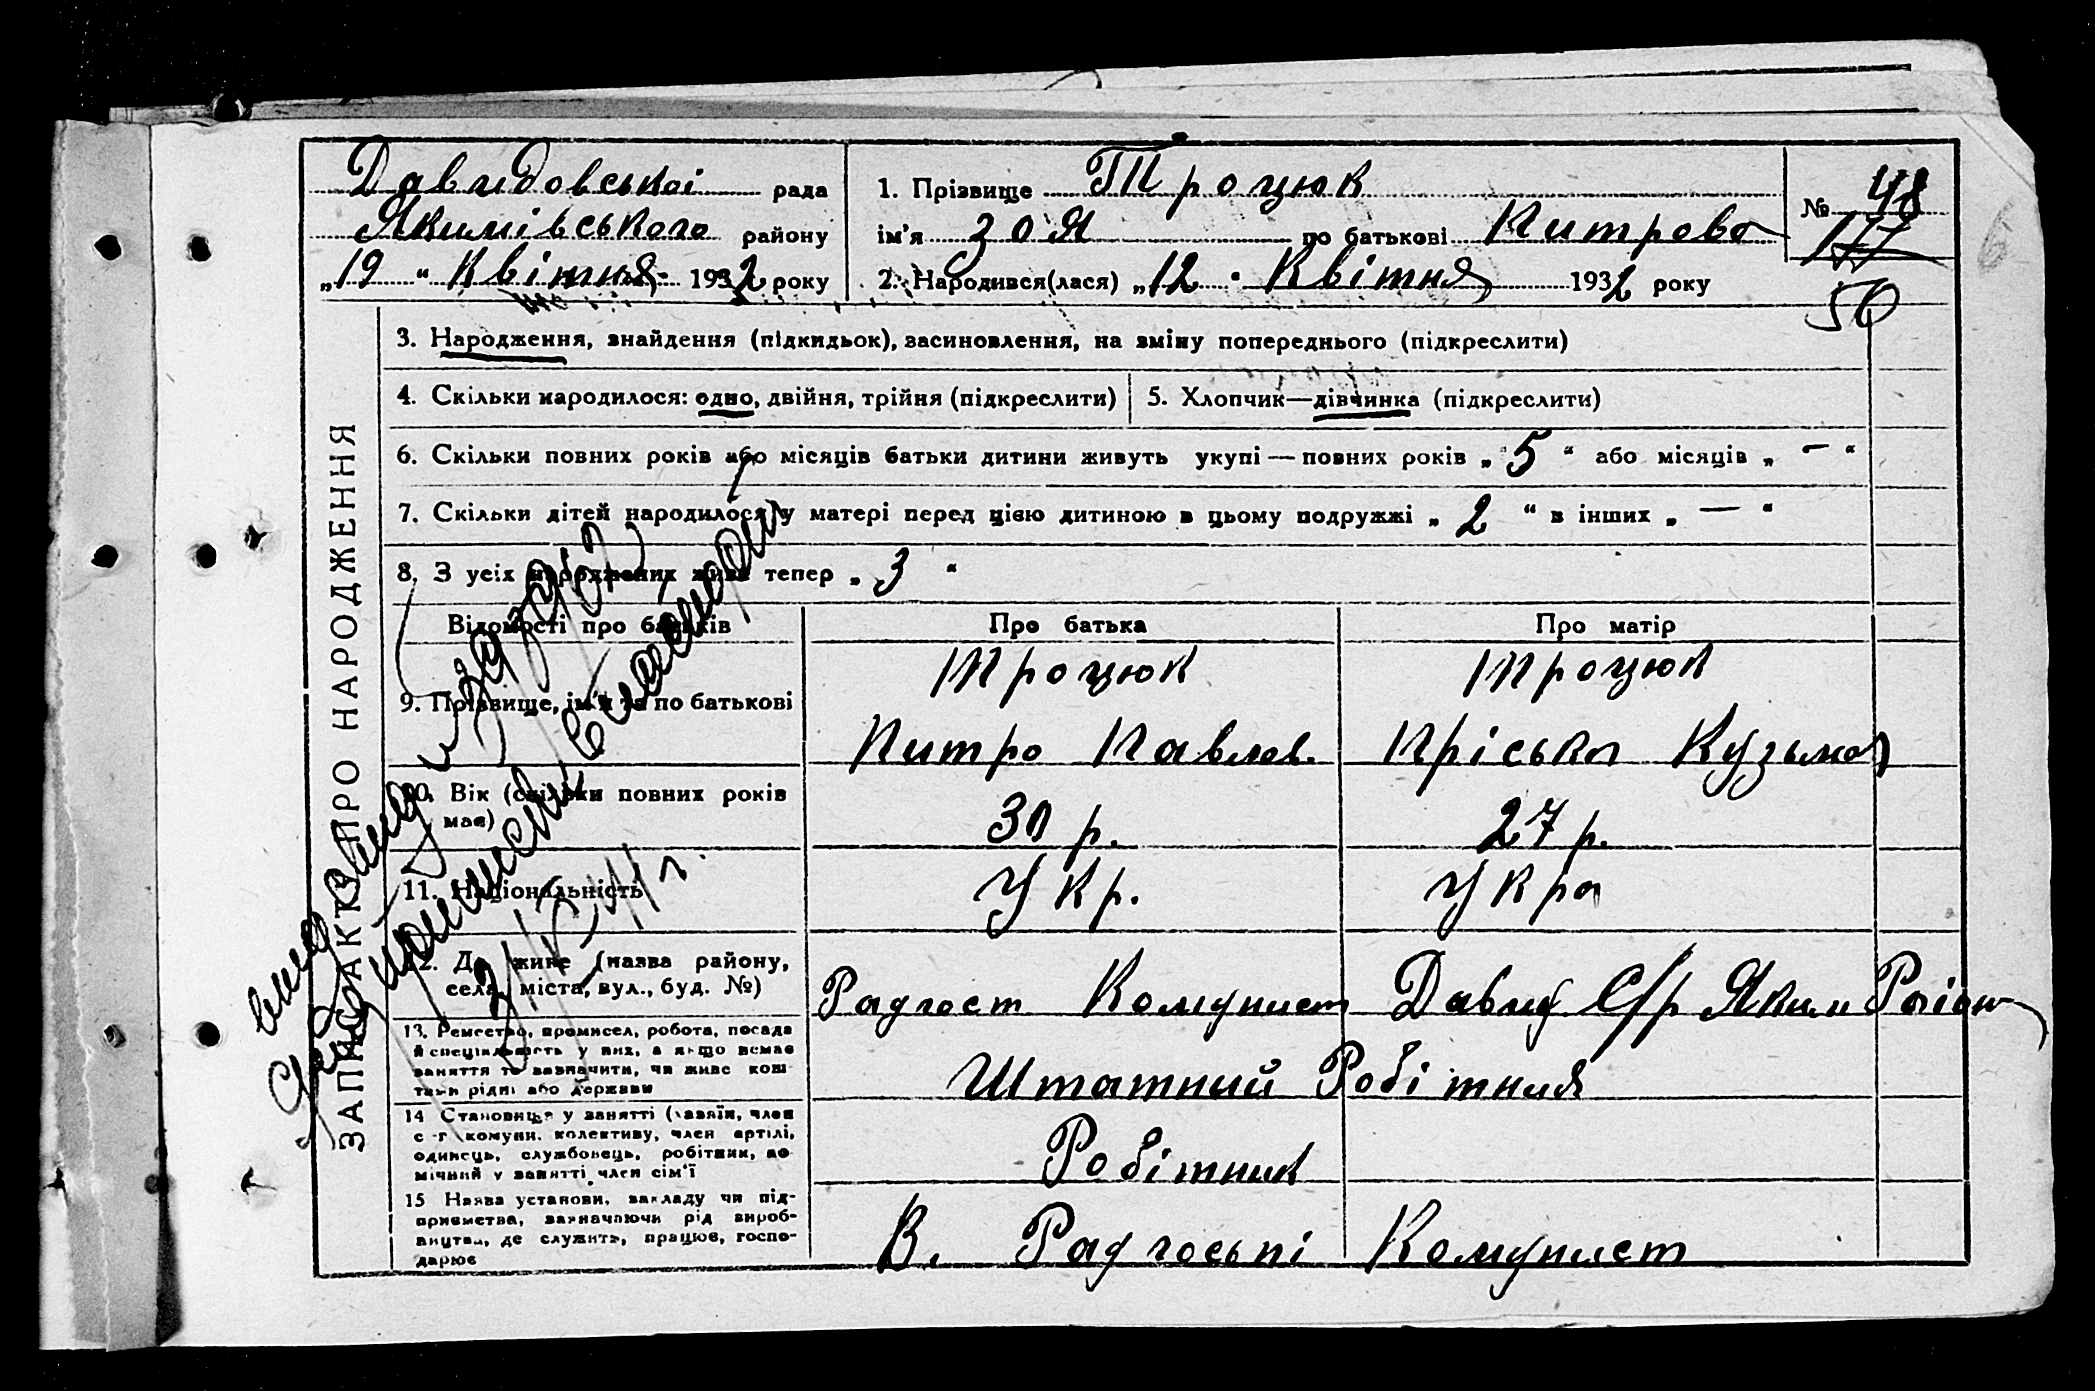 Давидовської рада
Якимівського району
„19 “ Квітня 1932 року
1. Прізвище Троцюк
ім’я Зоя по батькові Питрова
2. Народився(лася) „12 “ Квітня 1932 року
№ 48
177
50
ЗАПИС АКТУ ПРО НАРОДЖЕННЯ
3. Народження, знайдення (підкидьок), засиновлення, на зміну попереднього (підкреслити)
4. Скільки народилося: одно, двійня, трійня (підкреслити)
5. Хлопчик—дівчинка (підкреслити)
6. Скільки повних років або місяців батьки дитини живуть укупі — повних років „ 5 “ або місяців „ – “
7. Скільки дітей народилося у матері перед цією дитиною в цьому подружжі „ 2 “ в інших „ — “
8. З усіх народжених живе тепер „ 3 “
Відомості про батьків Про батька Про матір
9. Прізвище, ім’я та по батькові
Троцюк Троцюк
Питро Павлов. Пріська Кузьмов
10. Вік (скільки повних років має)
30 р. 27 р.
11. Національність
Укр. Укра
12. Де живе (назва району,
села, міста, вул., буд. №)
Радгост Комунист Давид С/р Яким Раіон
13. Ремество, промисел, робота, посада
й спеціяльність у них, а якщо немає
заняття то зазначити, чи живе кош
тами рідні або держави
Штатний Робітниця
14 Становище у занятті (хазяїн, член
с-г комуни, колективу, член артілі,
одинець, службовець, робітник, по
мічний у занятті член сім’ї
Робітник
15 Назва установи, закладу чи під-
приємства, зазначаючи рід вироб-
ництва, де служить, працює, госпо-
дарює
В. Радгоспі Комунист